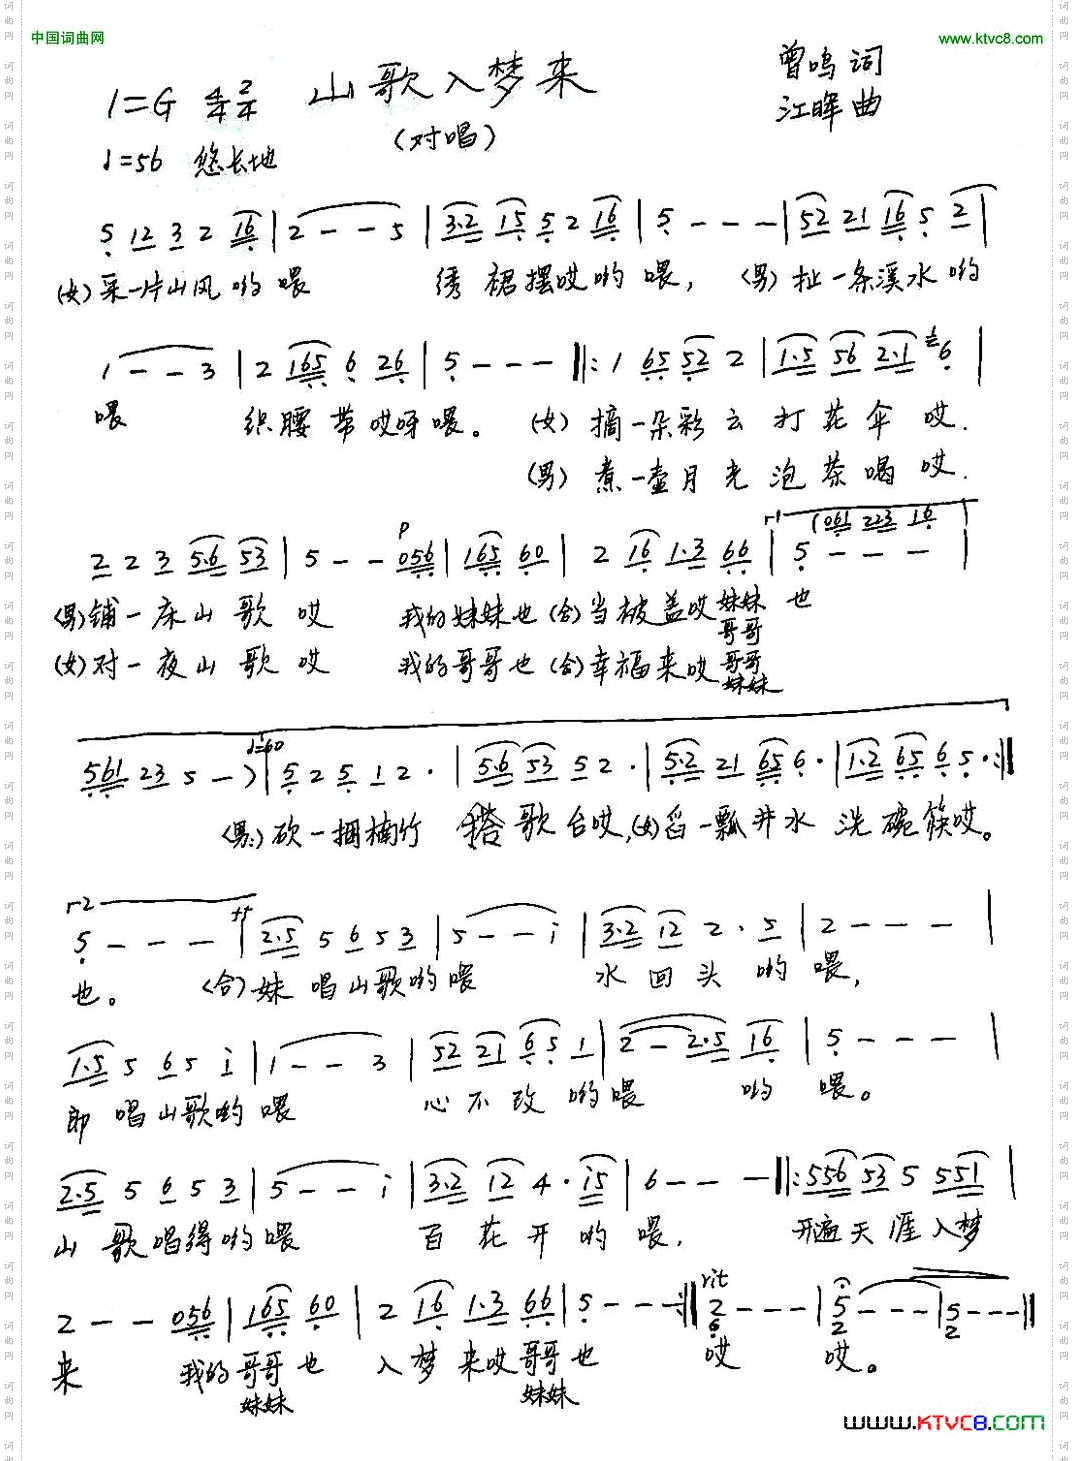 中国词曲网
www.ktvc8.com
1=G 4/4 2/4 山歌入梦来 曾鸣 词
(对唱) 江晖 曲
♩=56 悠长地
5 12 3 2 16 | 2 - - 5 | 3·2 15 5 2 16 | 5 - - - | 52 21 16 5 2 |
(女)采一片山风哟喂 绣裙摆哎哟喂, (男)扯一条溪水哟
1 - - 3 | 2 165 6 26 | 5 - - - ‖: 1 65 52 2 | 1·5 56 2·1 6 |
喂 织腰带哎呀喂。 (女)摘一朵彩云打花伞哎.
(男)煮一壶月光泡茶喝哎.
2 2 3 5·6 53 | 5 - - 056 | 165 60 | 2 16 1·3 66 | 5 - - - |
P
r1 (061 223 16
(男)铺一床山歌哎 我的妹妹也(合)当被盖哎妹妹也
哥哥
(女)对一夜山歌哎 我的哥哥也(合)幸福来哎哥哥
妹妹
561 23 5 - ) | 5 2 5 1 2· | 5·6 53 5 2· | 5·2 21 65 6· | 1·2 65 6 5· :‖
♩=60
(男:)砍一捆楠竹搭歌台哎,(女)舀一瓢井水洗碗筷哎。
r2
5 - - - | 2·5 5 6 5 3 | 5 - - i | 3·2 12 2· 5 | 2 - - - |
也。 (合)妹唱山歌哟喂 水回头哟喂,
1·5 5 65 i | 1 - - 3 | 52 21 65 1 | 2 - 2·5 16 | 5 - - - |
郎唱山歌哟喂 心不改哟喂哟喂。
2·5 5 6 5 3 | 5 - - i | 3·2 12 4· i5 | 6 - - - ‖: 556 53 5 551 |
山歌唱得哟喂 百花开哟喂. 开遍天涯入梦
2 - - 056 | 165 60 | 2 16 1·3 66 | 5 - - - :‖ 2 - - - | 5 - - - | 5 - - - ‖
rit
来 我的哥哥也 入梦来哎哥哥也 哎 哎。
妹妹 妹妹
www.KTVC8.com